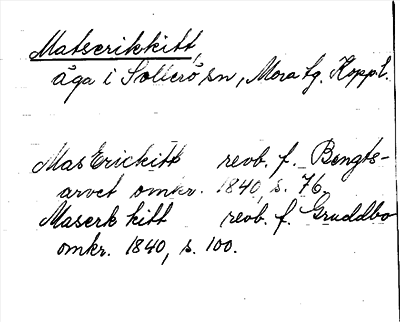 Matserikkitt,
äga i Sollerö sn, Mora tg. Koppb.
MasErickitt revb. f. Bengts-
arvet omkr. 1840, s. 76.
Maserk kitt revb. f. Gruddbo
omkr. 1840, s. 100.